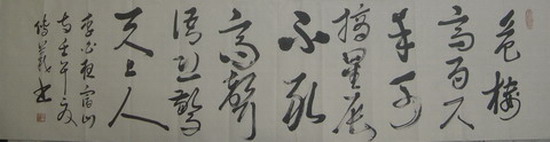 危樓
高百尺
手可
摘星辰
不敢
高聲
語恐驚
天上人
李白夜宿山
寺壬午
書